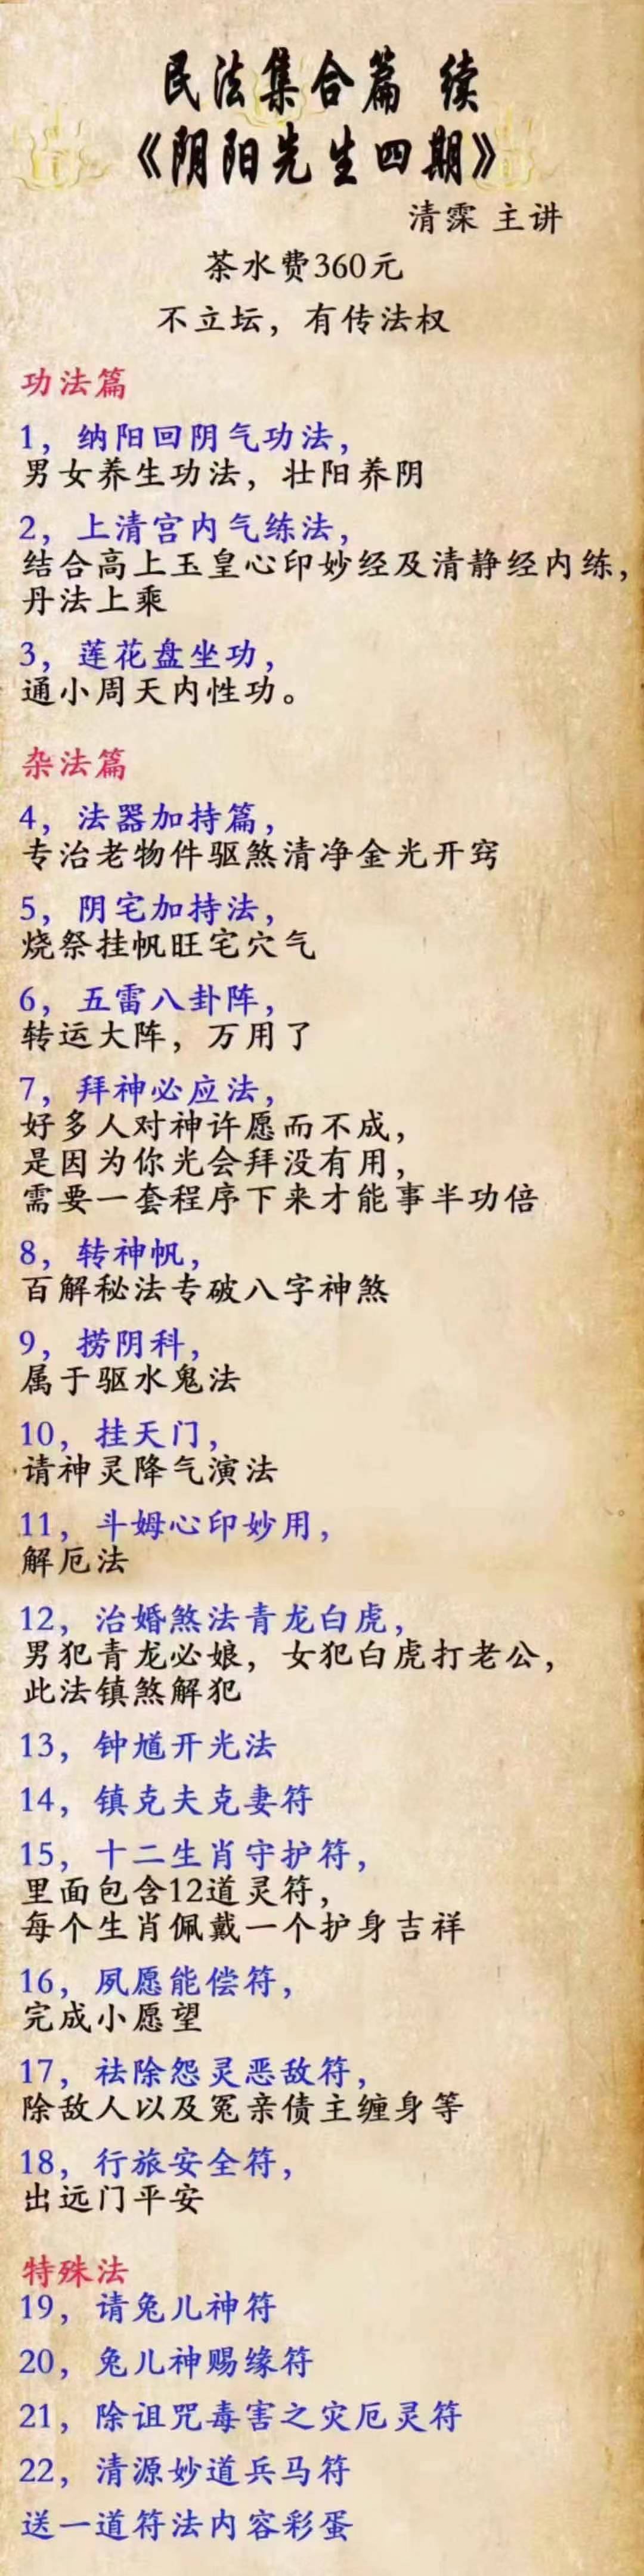 民法集合篇 续
《阴阳先生四期》
清霂 主讲
茶水费360元
不立坛，有传法权
功法篇
1，纳阳回阴气功法，
男女养生功法，壮阳养阴
2，上清宫内气练法，
结合高上玉皇心印妙经及清静经内练，
丹法上乘
3，莲花盘坐功，
通小周天内性功。
杂法篇
4，法器加持篇，
专治老物件驱煞清净金光开窍
5，阴宅加持法，
烧祭挂帆旺宅穴气
6，五雷八卦阵，
转运大阵，万用了
7，拜神必应法，
好多人对神许愿而不成，
是因为你光会拜没有用，
需要一套程序下来才能事半功倍
8，转神帆，
百解秘法专破八字神煞
9，捞阴科，
属于驱水鬼法
10，挂天门，
请神灵降气演法
11，斗姆心印妙用，
解厄法
12，治婚煞法青龙白虎，
男犯青龙必娘，女犯白虎打老公，
此法镇煞解犯
13，钟馗开光法
14，镇克夫克妻符
15，十二生肖守护符，
里面包含12道灵符，
每个生肖佩戴一个护身吉祥
16，夙愿能偿符，
完成小愿望
17，祛除怨灵恶敌符，
除敌人以及冤亲债主缠身等
18，行旅安全符，
出远门平安
特殊法
19，请兔儿神符
20，兔儿神赐缘符
21，除诅咒毒害之灾厄灵符
22，清源妙道兵马符
送一道符法内容彩蛋